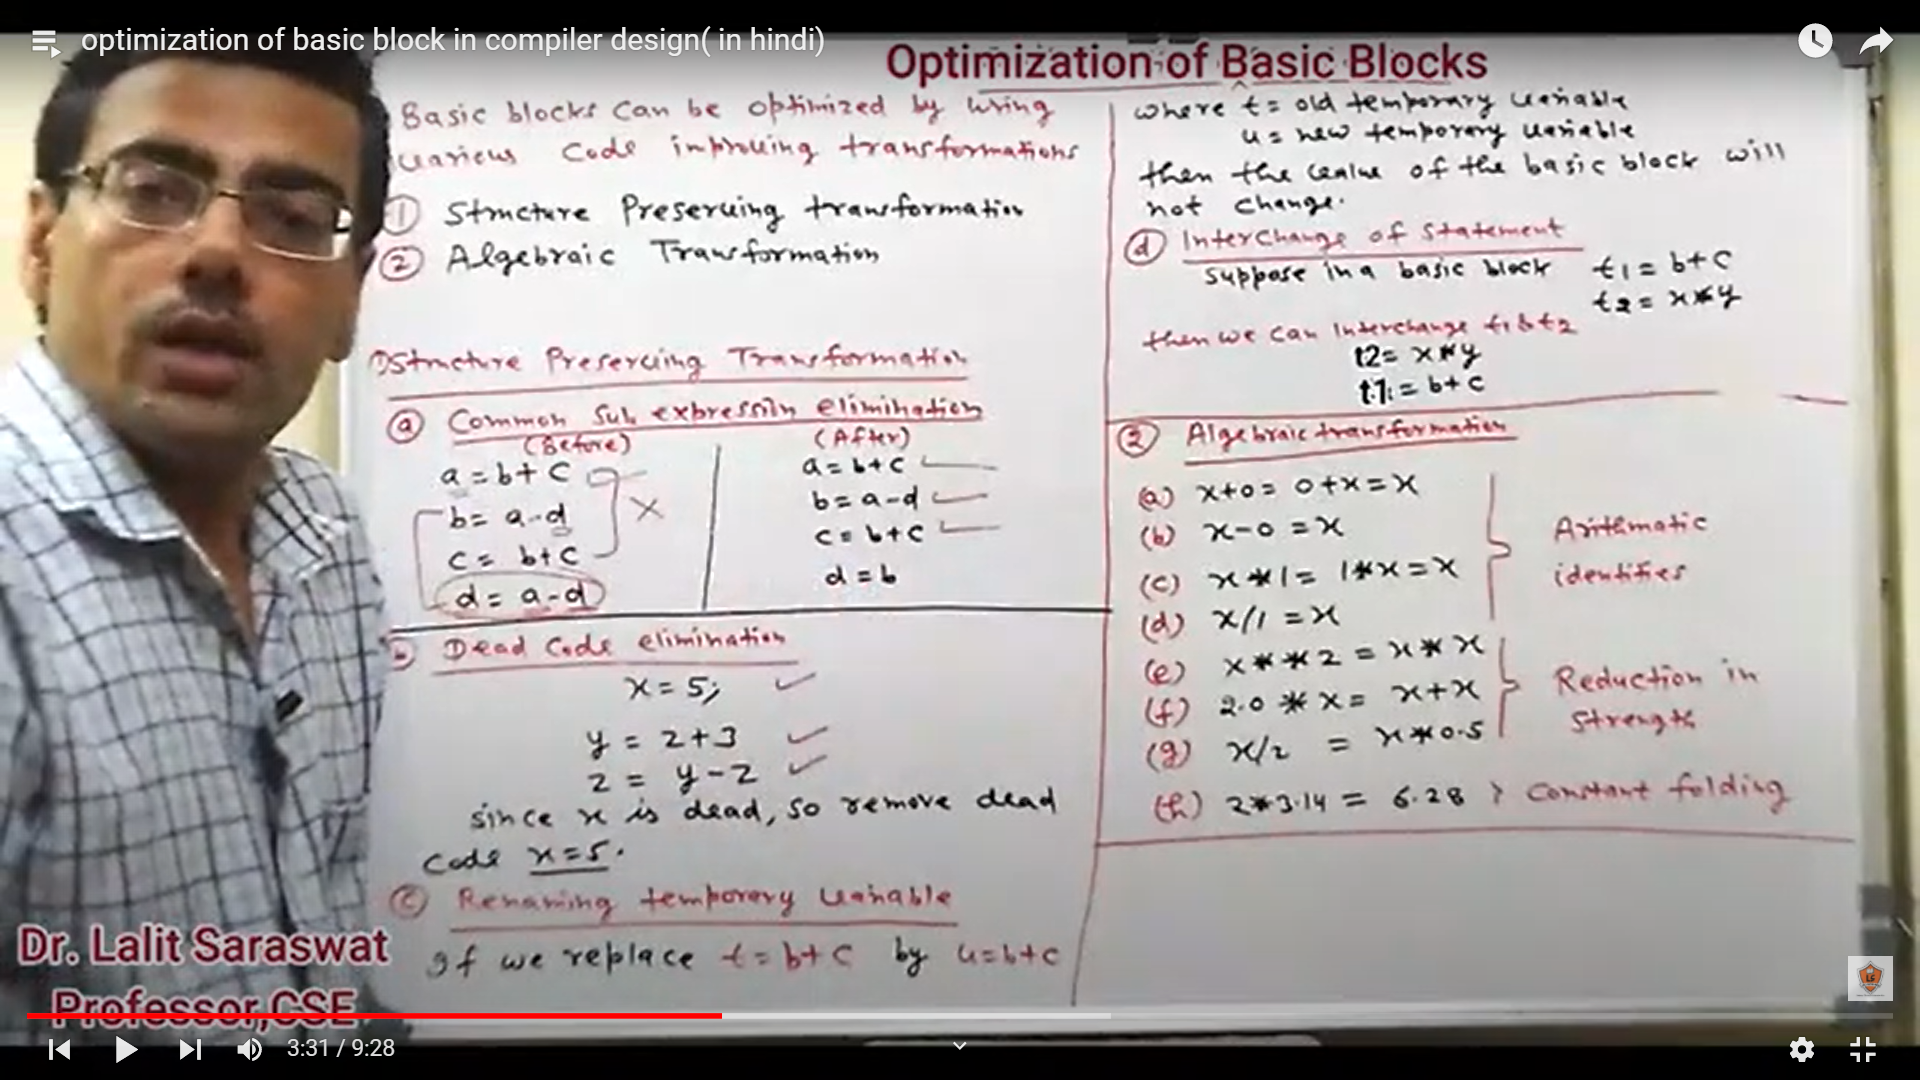 optimization of basic block in compiler design( in hindi)
Optimization of Basic Blocks
Basic blocks can be optimized by using
various code improving transformations
① Structure Preserving transformation
② Algebraic Transformation
① Structure Preserving Transformation
ⓐ Common Sub expression elimination
(Before)
a = b + c
b = a - d
c = b + c
d = a - d
X
(After)
a = b + c
b = a - d
c = b + c
d = b
ⓑ Dead Code elimination
x = 5;
y = 2 + 3
z = y - z
since x is dead, so remove dead
code x = 5.
ⓒ Renaming temporary variable
If we replace t = b + c by u = b + c
where t = old temporary variable
u = new temporary variable
then the value of the basic block will
not change.
ⓓ Interchange of statement
suppose in a basic block t1 = b + c
t2 = x * y
then we can interchange t1 & t2
t2 = x * y
t1 = b + c
② Algebraic transformation
(a) x + 0 = 0 + x = x
(b) x - 0 = x
(c) x * 1 = 1 * x = x
(d) x / 1 = x
Arithmatic
identities
(e) x * * 2 = x * x
(f) 2.0 * x = x + x
(g) x / 2 = x * 0.5
Reduction in
strength
(h) 2 * 3.14 = 6.28 } Constant folding
Dr. Lalit Saraswat
Professor,CSE
3:31 / 9:28